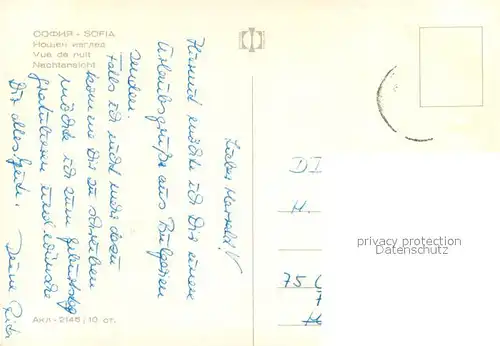 СОФИЯ - SOFIA
Нощен изглед
Vue de nuit
Nachtansicht
Lieber
Hiermit möchte ich Dir einen
Urlaubsgruße aus Bulgarien
senden.
Falls ich nicht mehr dazu
komme Dir zu schreiben
möchte ich zum Geburtstag
gratulieren und wünsche
Dir alles Gute.
Deine
Акл-2145/10 ст.
DI
H.
75
privacy protection
Datenschutz